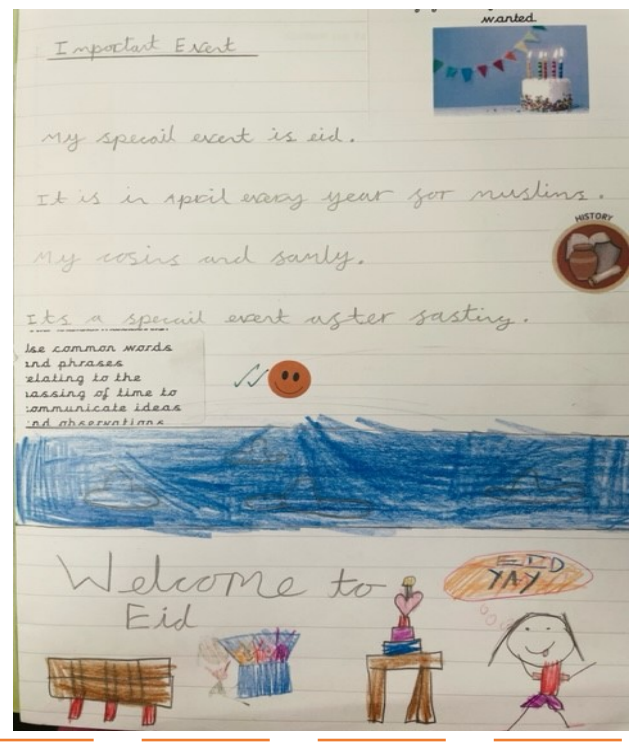 wanted
Important Event
My specail event is eid.
It is in April every year for muslims.
HISTORY
My cosins and samly.
Its a specail event after fasting.
Use common words
and phrases
relating to the
passing of time to
communicate ideas
and observations
EID
YAY
Welcome to
Eid